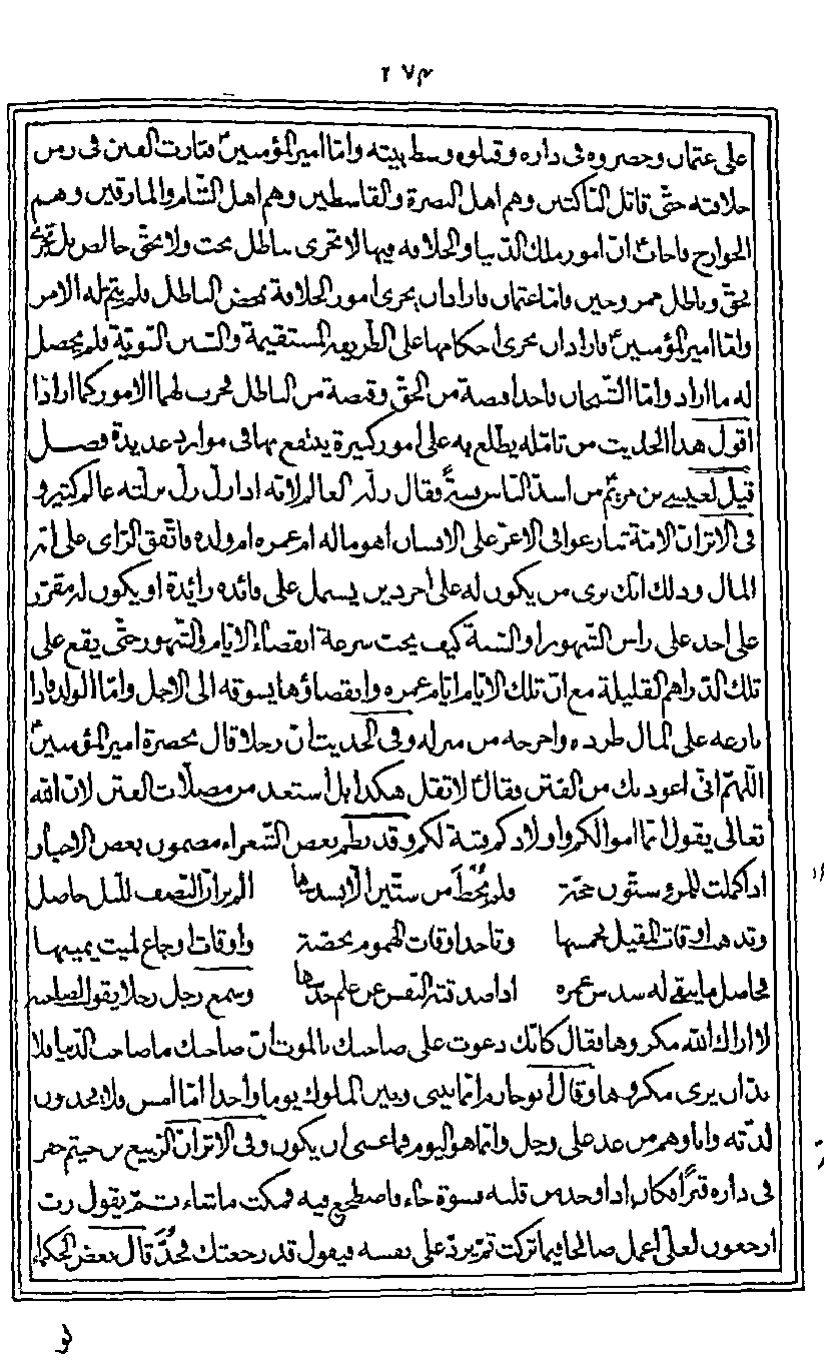 ٢٧٤
على عثمان وحصروه في داره وقتلوه وسط بيته واما امير المؤمنين ؑ فثارت الفتن في زمن
خلافته حتّى قاتل النّاكثين وهم اهل البصرة والقاسطين وهم اهل الشّام والمارقين وهم
الخوارج فاجاب ؑ انّ امور ملك الدّنيا والخلافه فيها لا تجرى بباطل بحت ولا بحقّ خالص بل تجرى
بحقّ وباطل ممزوجين فامّا عثمان فاراد ان يجرى امور الخلافة بمحض الباطل فلم يتم له الامر
وامّا امير المؤمنين ؑ فاراد ان يجرى احكامها على الطّريقه المستقيمة والسّنن النّبويّة فلم يحصل
له ما اراد وامّا الشّيخان فاخذا قبضة من الحقّ وقبضة من الباطل فجرت لهما الامور كما ارادا
اقول هذا الحديث من تامّله يطلع به على امور كثيرة ينتفع بها في موارد عديدة فصل
قيل لعيسى بن مريم من اسدّ النّاس فتنةً فقال زلّة العالم لانّه اذا زلّ زلّ بزلّته عالم كثير و
في الاثر انّ الامّة تنازعوا في الاعزّ على الانسان اهو ماله ام عمره ام ولده فاتّفق الرّاى على انّه
المال وذلك انّك ترى من يكون له على اخر دين يشمل على فائده زائدة او يكون له مقرّر
على احد على راس الشّهور او السّنة كيف يحبّ سرعة انقضاء الايّام والشّهور حتّى يقع على
تلك الدّراهم القليلة مع انّ تلك الايّام ايّام عمره وانقضاؤها يسوقه الى الاجل وامّا الولد فاذا
نازعه على المال طرده واخرجه من منزله وفى الحديث انّ رجلا قال بحضرة امير المؤمنين ؑ
اللّهمّ انّى اعوذ بك من الفتن فقال ؑ لا تقل هكذا بل استعذ من مضلّات الفتن لانّ الله
تعالى يقول انّما اموالكم واولادكم فتنة لكم وقد نظم بعض الشّعراء مضمون بعض الاخبار
اذا كملت للمرؤ ستّون حجّة ولم يحُظَ من ستّين الّا بسدسها الم تر انّ النّصف للّيل حاصل
وتذهب اوقات المقيل بخمسها وتاخذ اوقات الهموم بحصّة واوقات اوجاع لميت يمسها
فحاصل ما يبقى له سدس عمره اذا صدقته النّفس عن علم حدسها وسمع رجل رجلا يقول لصاحبه
لا اراك الله مكروها فقال كانّك دعوت على صاحبك بالموت انّ صاحبك ما صاحب الدّنيا فلا
بدّ ان يرى مكروها وقال ابو حازم انّما بينى وبين الملوك يوما واحدا امّا امس فلا يجدون
لذّته وانا وهم من غد على وجل وانّما هو اليوم فما عسى ان يكون وفى الاثر انّ الرّبيع بن خيثم حفر
في داره قبرًا فكان اذا وجد من قلبه قسوة جاء فاضطجع فيه فمكث ما شاء ثمّ يقول ربّ
ارجعون لعلّى اعمل صالحا فيما تركت ثمّ يردّ على نفسه فيقول قد رجعتك فجُدَّ قال بعض الحكماء
لو